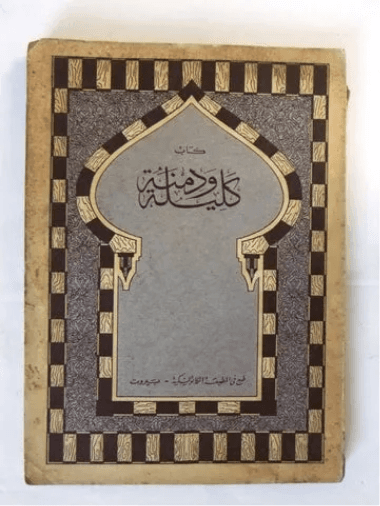 كتاب
كليلة ودمنة
طبع في المطبعة الكاثوليكية - بيروت